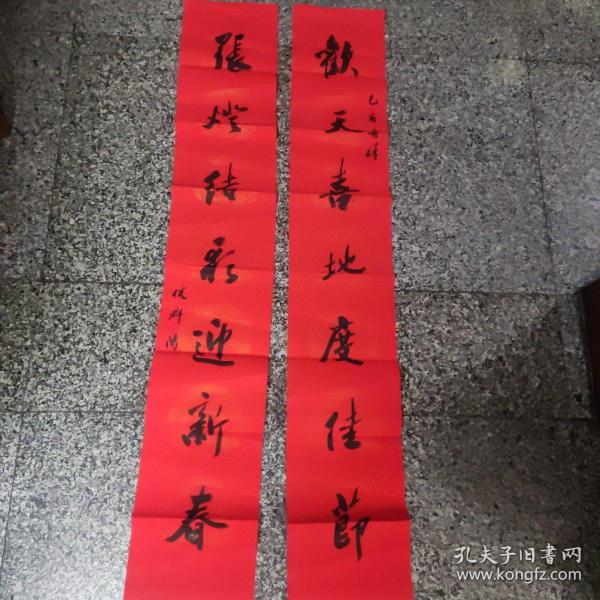 歡天喜地度佳節
張燈結彩迎新春
孔夫子旧书网
www.kongfz.com